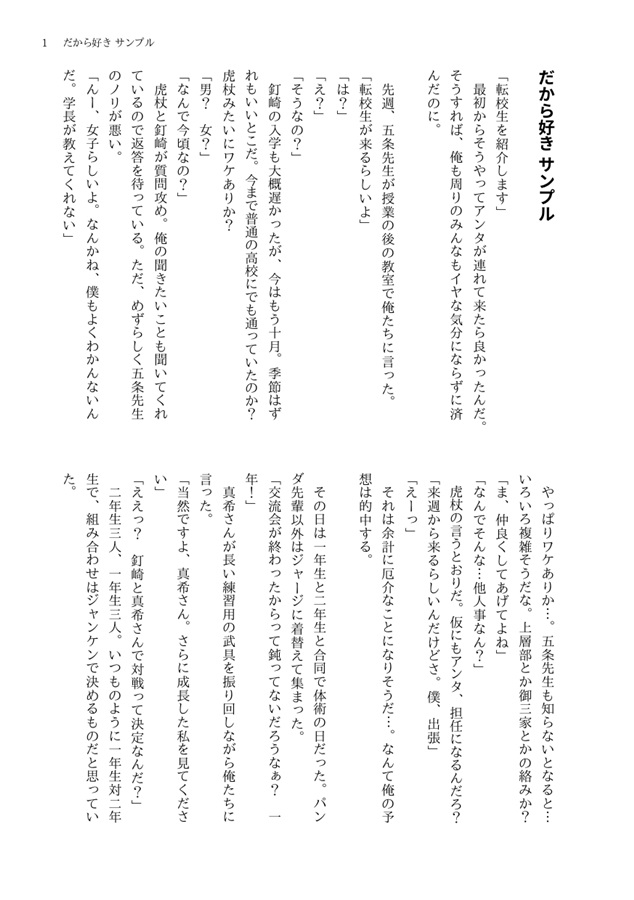 1 だから好き サンプル
だから好き サンプル
「転校生を紹介します」
最初からそうやってアンタが連れて来たら良かったんだ。
そうすれば、俺も周りのみんなもイヤな気分にならずに済
んだのに。
先週、五条先生が授業の後の教室で俺たちに言った。
「転校生が来るらしいよ」
「は？」
「え？」
「そうなの？」
釘崎の入学も大概遅かったが、今はもう十月。季節はず
れもいいとこだ。今まで普通の高校にでも通っていたのか？
虎杖みたいにワケありか？
「男？　女？」
「なんで今頃なの？」
虎杖と釘崎が質問攻め。俺の聞きたいことも聞いてくれ
ているので返答を待っている。ただ、めずらしく五条先生
のノリが悪い。
「んー、女子らしいよ。なんかね、僕もよくわかんないん
だ。学長が教えてくれない」
やっぱりワケありか…。五条先生も知らないとなると…
いろいろ複雑そうだな。上層部とか御三家とかの絡みか？
「ま、仲良くしてあげてよね」
「なんでそんな…他人事なん？」
虎杖の言うとおりだ。仮にもアンタ、担任になるんだろ？
「来週から来るらしいんだけどさ。僕、出張」
「えーっ」
それは余計に厄介なことになりそうだ…。なんて俺の予
想は的中する。
その日は一年生と二年生と合同で体術の日だった。パン
ダ先輩以外はジャージに着替えて集まった。
「交流会が終わったからって鈍ってないだろうなぁ？　一
年！」
真希さんが長い練習用の武具を振り回しながら俺たちに
言った。
「当然ですよ、真希さん。さらに成長した私を見てくださ
い」
「ええっ？　釘崎と真希さんで対戦って決定なんだ？」
二年生三人、一年生三人。いつものように一年生対二年
生で、組み合わせはジャンケンで決めるものだと思ってい
た。